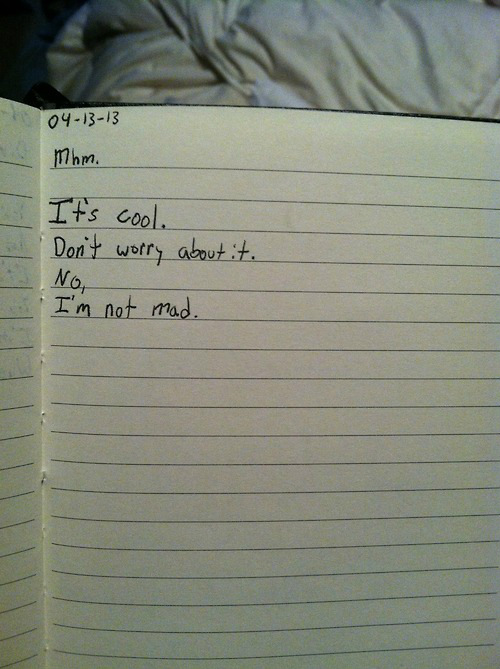 04-13-13
Mhm.
It's cool.
Don't worry about it.
No,
I'm not mad.